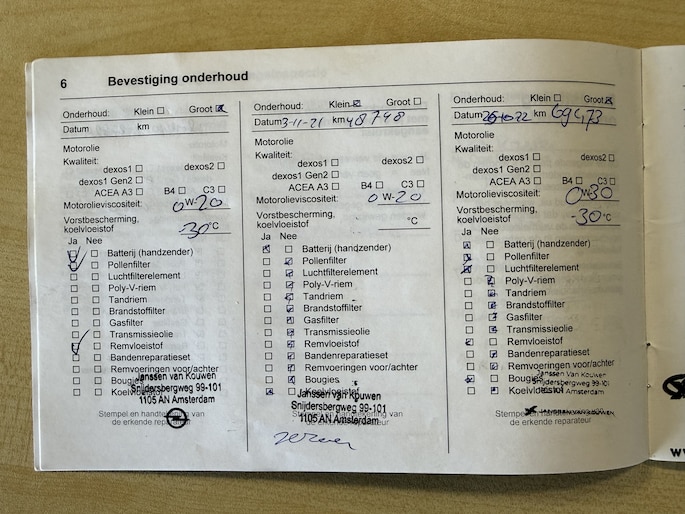 6 Bevestiging onderhoud
Onderhoud: Klein Groot
Datum km
Motorolie
Kwaliteit:
dexos1 dexos2
dexos1 Gen2
ACEA A3 B4 C3
Motorolieviscositeit: 0W-20
Vorstbescherming,
koelvloeistof -30°C
Ja Nee
Batterij (handzender)
Pollenfilter
Luchtfilterelement
Poly-V-riem
Tandriem
Brandstoffilter
Gasfilter
Transmissieolie
Remvloeistof
Bandenreparatieset
Remvoeringen voor/achter
Bougies
Koelvloeistof
Janssen van Kouwen
Snijdersbergweg 99-101
1105 AN Amsterdam
Stempel en van
de erkende reparateur
Onderhoud: Klein Groot
Datum 3-11-21 km 48748
Motorolie
Kwaliteit:
dexos1 dexos2
dexos1 Gen2
ACEA A3 B4 C3
Motorolieviscositeit: 0W-20
Vorstbescherming,
koelvloeistof °C
Ja Nee
Batterij (handzender)
Pollenfilter
Luchtfilterelement
Poly-V-riem
Tandriem
Brandstoffilter
Gasfilter
Transmissieolie
Remvloeistof
Bandenreparatieset
Remvoeringen voor/achter
Bougies
Koelvloeistof
Janssen van Kouwen
Snijdersbergweg 99-101
1105 AN Amsterdam
Onderhoud: Klein Groot
Datum 25-10-22 km 69473
Motorolie
Kwaliteit:
dexos1 dexos2
dexos1 Gen2
ACEA A3 B4 C3
Motorolieviscositeit: 0W-30
Vorstbescherming,
koelvloeistof -30°C
Ja Nee
Batterij (handzender)
Pollenfilter
Luchtfilterelement
Poly-V-riem
Tandriem
Brandstoffilter
Gasfilter
Transmissieolie
Remvloeistof
Bandenreparatieset
Remvoeringen voor/achter
Bougies
Koelvloeistof
Janssen van Kouwen
Snijdersbergweg 99-101
1105 AN Amsterdam
JANSSEN VAN KOUWEN
de erkende reparateur